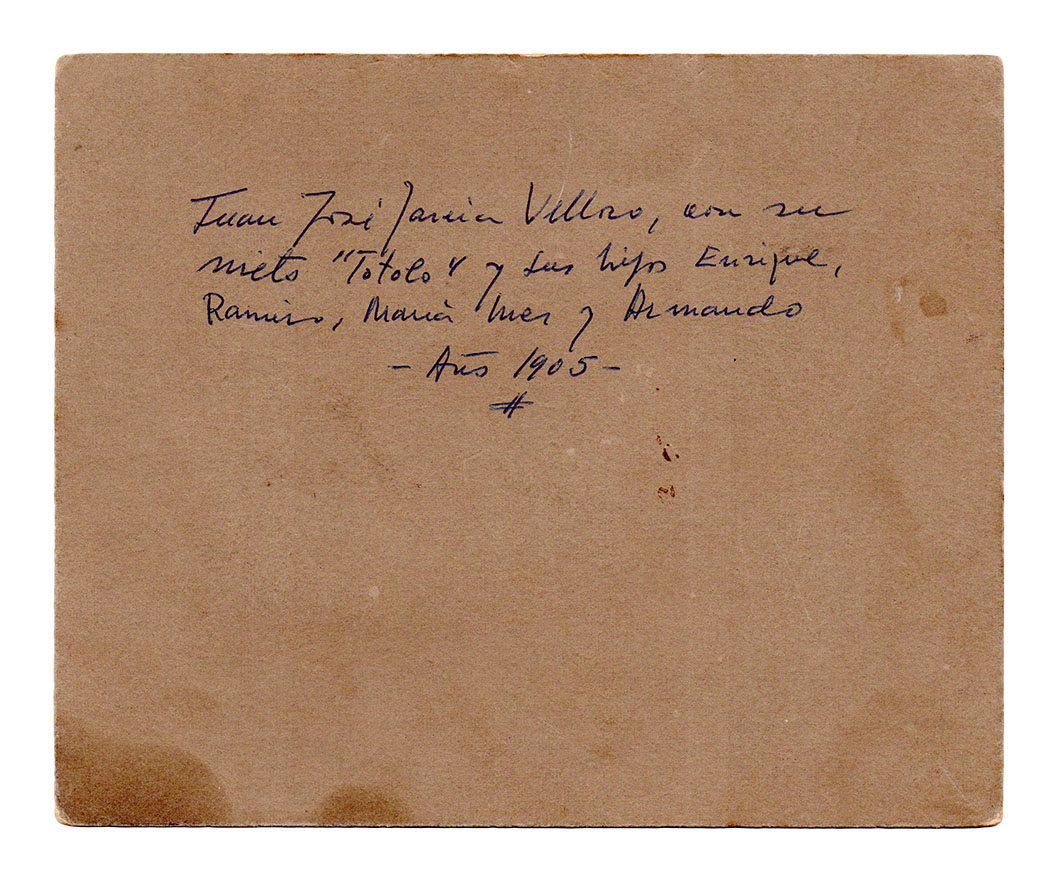 Juan José García Velloso, con su
nieto "Totolo" y sus hijos Enrique,
Ramiro, María Ines y Armando
- Año 1905 -
#